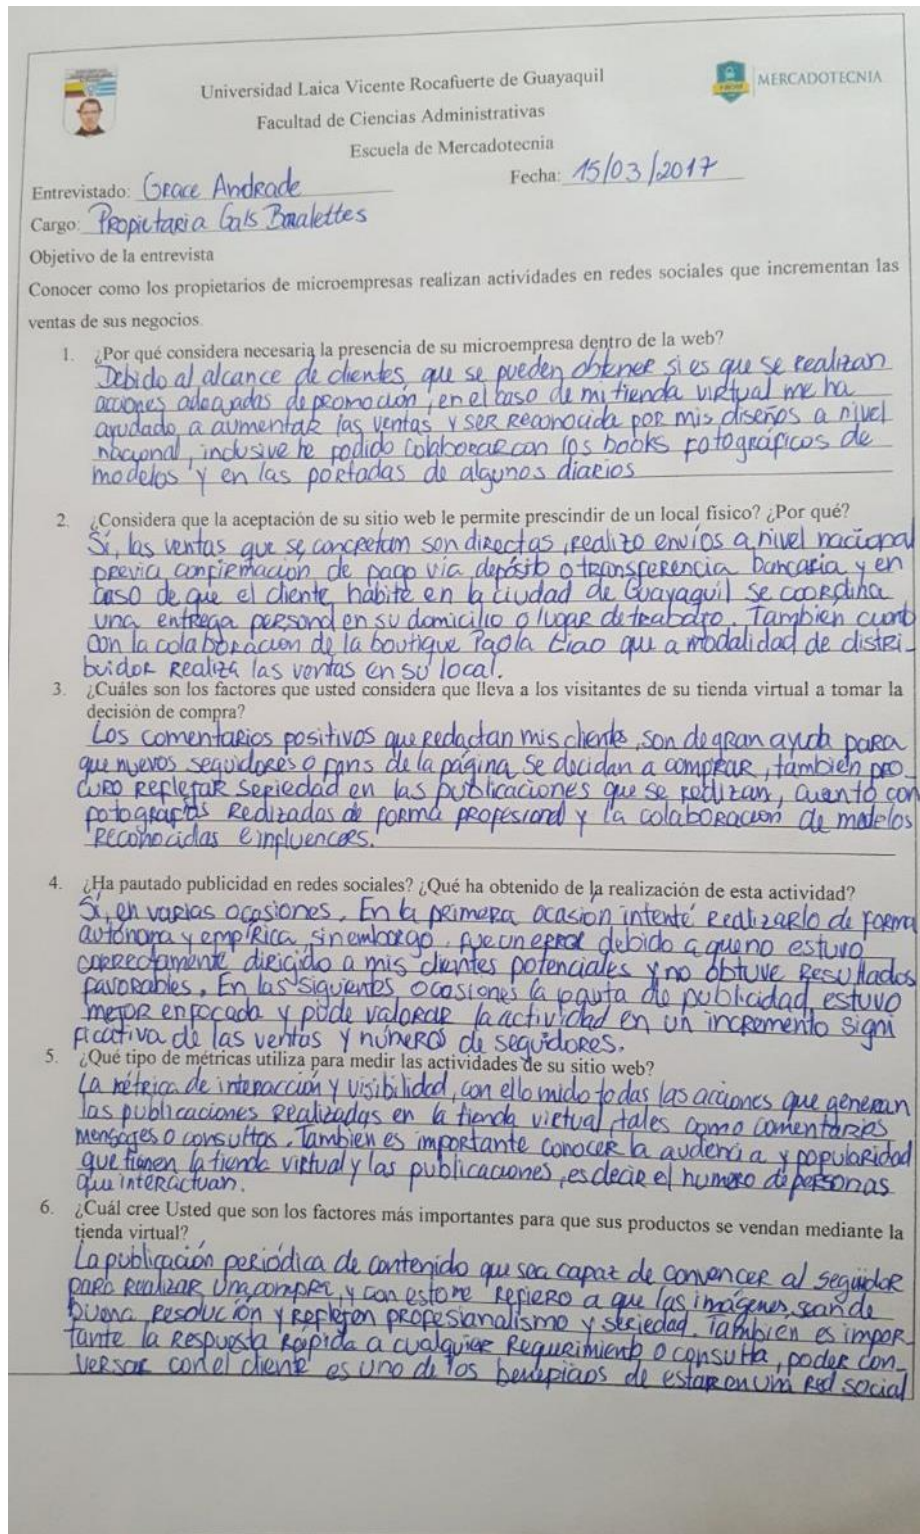 Universidad Laica Vicente Rocafuerte de Guayaquil
MERCADOTECNIA
Facultad de Ciencias Administrativas
Escuela de Mercadotecnia
Entrevistado: Grace Andrade Fecha: 15/03/2017
Cargo: Propietaria Gals Bralettes
Objetivo de la entrevista
Conocer como los propietarios de microempresas realizan actividades en redes sociales que incrementan las
ventas de sus negocios.
1. ¿Por qué considera necesaria la presencia de su microempresa dentro de la web?
Debido al alcance de clientes, que se pueden obtener si es que se realizan
acciones adecuadas de promoción, en el caso de mi tienda virtual me ha
ayudado a aumentar las ventas y ser reconocida por mis diseños a nivel
nacional, inclusive he podido colaborar con los books fotográficos de
modelos y en las portadas de algunos diarios
2. ¿Considera que la aceptación de su sitio web le permite prescindir de un local físico? ¿Por qué?
Sí, las ventas que se concretan son directas, realizo envíos a nivel nacional
previa confirmación de pago vía depósito o transferencia bancaria y en
caso de que el cliente habite en la ciudad de Guayaquil se coordina
una entrega personal en su domicilio o lugar de trabajo. Tambien cuento
con la colaboración de la boutique Paola Ciao que a modalidad de distri-
buidor realiza las ventas en su local.
3. ¿Cuáles son los factores que usted considera que lleva a los visitantes de su tienda virtual a tomar la
decisión de compra?
Los comentarios positivos que redactan mis clientes, son de gran ayuda para
que nuevos seguidores o fans de la página se decidan a comprar, también pro-
curo reflejar seriedad en las publicaciones que se realizan, cuento con
fotografías realizadas de forma profesional y la colaboración de modelos
reconocidas e influencers.
4. ¿Ha pautado publicidad en redes sociales? ¿Qué ha obtenido de la realización de esta actividad?
Sí, en varias ocasiones. En la primera ocasion intenté realizarlo de forma
autónoma y empírica, sin embargo fue un error debido a que no estuvo
correctamente dirigido a mis clientes potenciales y no obtuve resultados
favorables. En las siguientes ocasiones la pauta de publicidad estuvo
mejor enfocada y pude valorar la actividad en un incremento signi
ficativa de las ventas y números de seguidores.
5. ¿Qué tipo de métricas utiliza para medir las actividades de su sitio web?
La métrica de interacción y visibilidad, con ello mido todas las acciones que generan
las publicaciones realizadas en la tienda virtual, tales como comentarios
mensajes o consultas. Tambien es importante conocer la audencia y popularidad
que tienen la tienda virtual y las publicaciones, es decir el numero de personas
que interactuan.
6. ¿Cuál cree Usted que son los factores más importantes para que sus productos se vendan mediante la
tienda virtual?
La publicación periódica de contenido que sea capaz de convencer al seguidor
para realizar una compra, y con esto me refiero a que las imágenes sean de
buena resolución y reflejen profesionalismo y seriedad. También es impor-
tante la respuesta rápida a cualquier requerimiento o consulta, poder con-
versar con el cliente es uno de los beneficios de estar en una red social